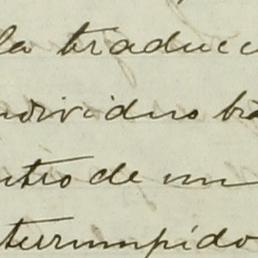 la traducci
ndividuos ba
ntro de un
terrumpido